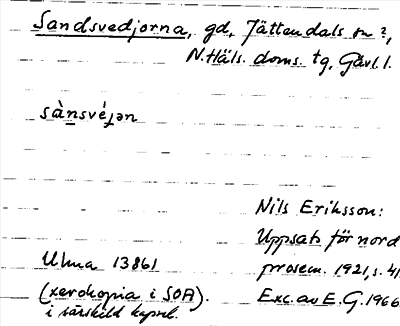 Sandsvedjorna, gd, Jättendals sn?,
N. Häls. doms. tg, Gävl. l.
sànsvéjən
Nils Eriksson:
Uppsats för nord
Ulma 13861
prosem. 1921, s. 41.
(xerokopia i SOA).
Exc. av E. G. 1966
i särskild kapsel.